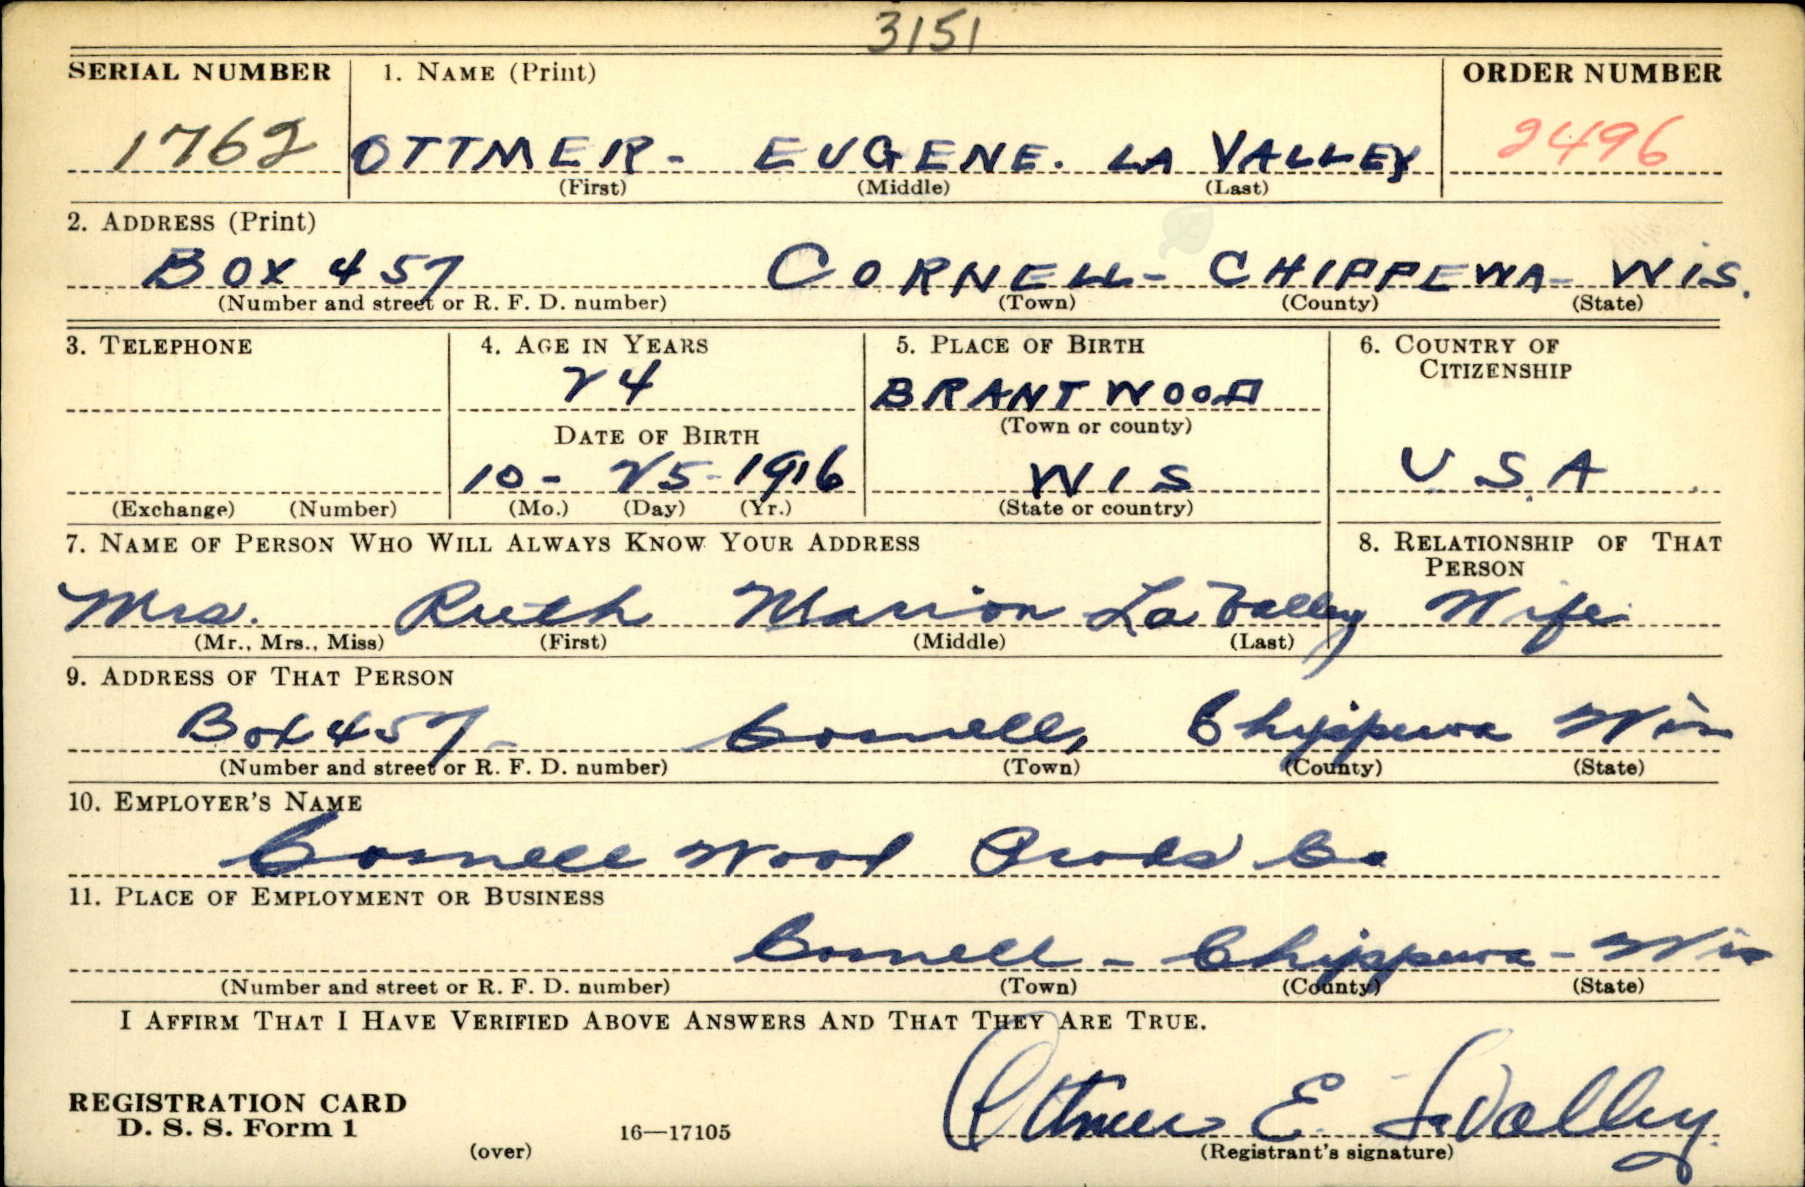 3151
SERIAL NUMBER 1. NAME (Print) ORDER NUMBER
1762 OTTMER- EUGENE. LA VALLEY 2496
(First) (Middle) (Last)
2. ADDRESS (Print)
BOX 457 CORNELL- CHIPPEWA- WIS.
(Number and street or R. F. D. number) (Town) (County) (State)
3. TELEPHONE 4. AGE IN YEARS 5. PLACE OF BIRTH 6. COUNTRY OF CITIZENSHIP
24 BRANTWOOD
DATE OF BIRTH (Town or county)
10- 25-1916 WIS U.S.A.
(Exchange) (Number) (Mo.) (Day) (Yr.) (State or country)
7. NAME OF PERSON WHO WILL ALWAYS KNOW YOUR ADDRESS 8. RELATIONSHIP OF THAT PERSON
Mrs. Ruth Marion La Valley Wife
(Mr., Mrs., Miss) (First) (Middle) (Last)
9. ADDRESS OF THAT PERSON
Box 457- Cornell, Chippewa Wis
(Number and street or R. F. D. number) (Town) (County) (State)
10. EMPLOYER'S NAME
Cornell Wood Prods Co
11. PLACE OF EMPLOYMENT OR BUSINESS
Cornell - Chippewa - Wis
(Number and street or R. F. D. number) (Town) (County) (State)
I AFFIRM THAT I HAVE VERIFIED ABOVE ANSWERS AND THAT THEY ARE TRUE.
Ottmer E. LaValley
REGISTRATION CARD
D. S. S. Form 1
(over) 16—17105 (Registrant's signature)